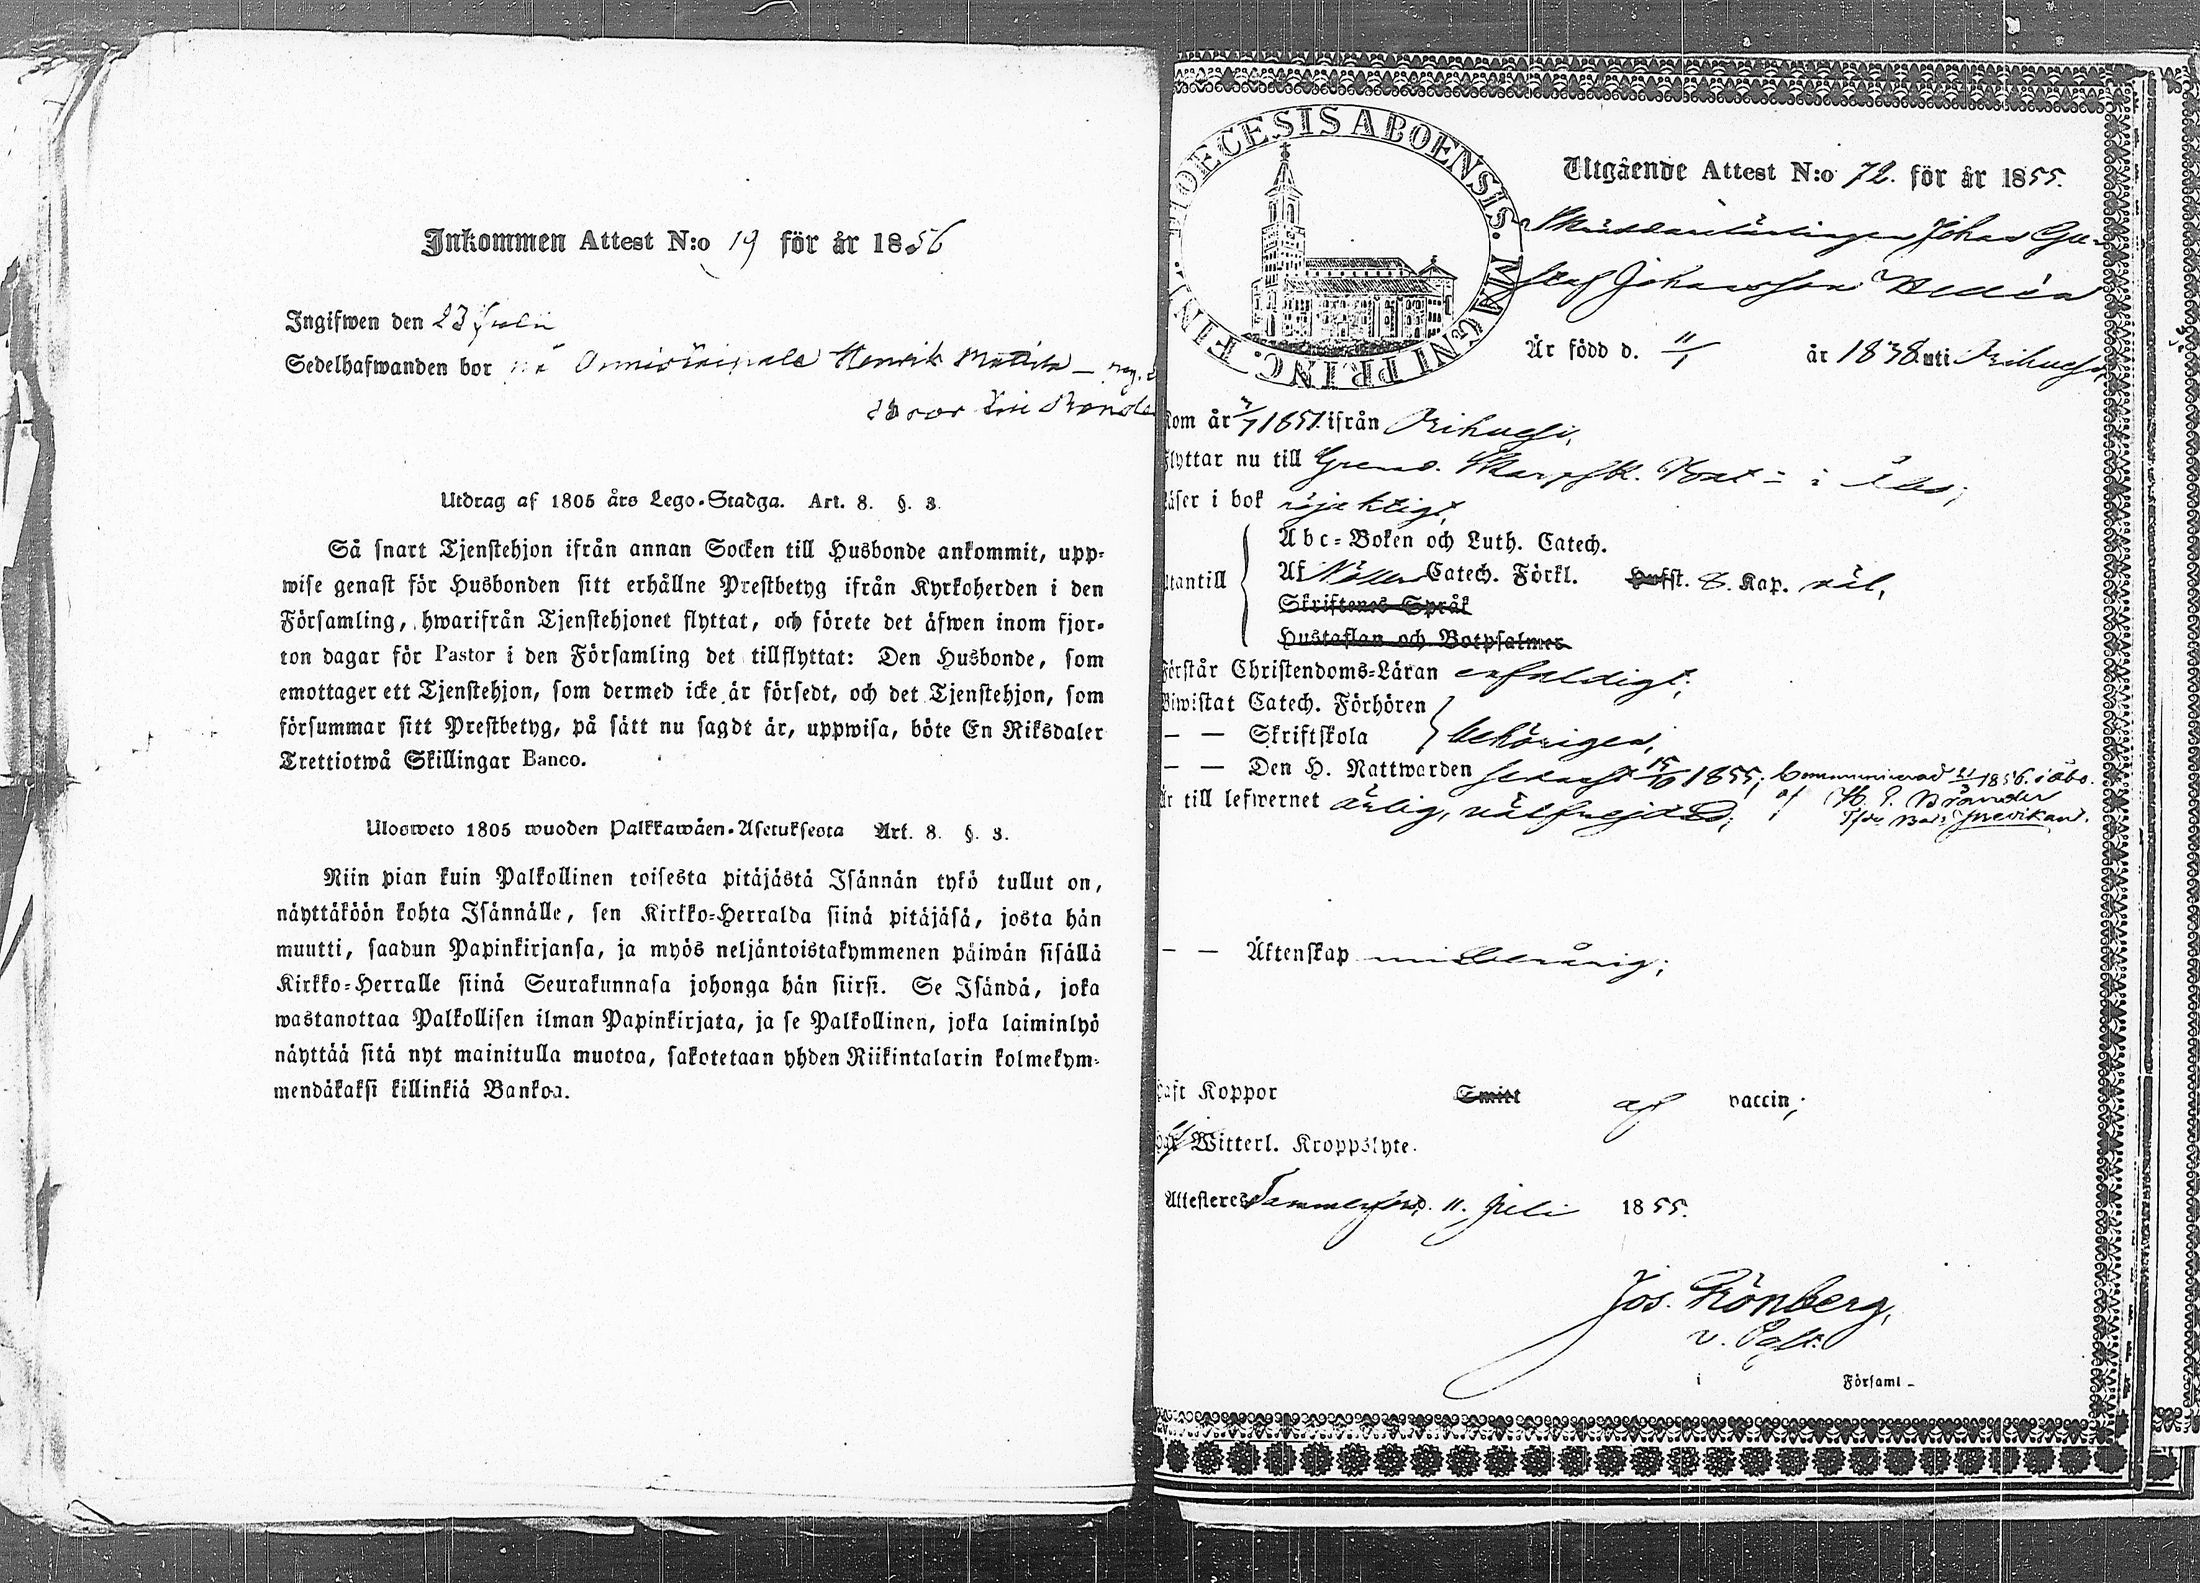 Inkommen Attest N:o 19 för år 1856
Ingifwen den 23 Julii
Sedelhafwanden bor på Henrik
Utdrag af 1805 års Lego-Stadga. Art. 8. §. 3.
Så snart Tjenstehjon ifrån annan Socken till Husbonde ankommit, upp-
wise genast för Husbonden sitt erhållne Prestbetyg ifrån Kyrkoherden i den
Församling, hwarifrån Tjenstehjonet flyttat, och förete det äfwen inom fjor-
ton dagar för Pastor i den Församling det tillflyttat: Den Husbonde, som
emottager ett Tjenstehjon, som dermed icke är försedt, och det Tjenstehjon, som
försummar sitt Prestbetyg, på sätt nu sagdt är, uppwisa, böte En Riksdaler
Trettiotwå Skillingar Banco.
Ulosweto 1805 wuoden Palkkawäen-Asetuksesta Art. 8. §. 3.
Niin pian kuin Palkollinen toisesta pitäjästä Isännän tykö tullut on,
näyttäköön kohta Isännälle, sen Kirkko-Herralda siinä pitäjäsä, josta hän
muutti, saadun Papinkirjansa, ja myös neljäntoistakymmenen päiwän sisällä
Kirkko-Herralle siinä Seurakunnasa johonga hän siirsi. Se Isändä, joka
wastanottaa Palkollisen ilman Papinkirjata, ja se Palkollinen, joka laiminlyö
näyttää sitä nyt mainitulla muotoa, sakotetaan yhden Riikintalarin kolmekym-
mendäkaksi killinkiä Bankoa.
DIOECESIS ABOENSIS. MAGNI PRINC. FINL.
Utgående Attest N:o 72. för år 1855.
Skräddarelärlingen Johan Gu-
staf Johansson
Är född d. 11/1 år 1838. uti Orihvesi,
kom år 7/7 1851. ifrån Orihvesi,
flyttar nu till Grenad. Skarpsk. Bat: i Åbo;
Läser i bok
Utantill
Abc-Boken och Luth. Catech.
Af Catech. Förkl. Husst. 8. Kap. väl,
Skriftenes Språk
Hustaflan och Botpsalmer
Förstår Christendoms-Läran enfaldigt;
Biwistat Catech. Förhören
— — Skriftskola behörigen,
— — Den H. Nattwarden senast 15/ 1855; Communicerad 1856. i Åbo.
Är till lefwernet ärlig, välfrejdad; af
— — Äktenskap minderårig;
Haft Koppor Smitt af vaccin;
Witterl. Kroppslyte.
Attesteres Tammerfors d. 11. Juli 1855.
Jos. Grönberg,
v. Past.
i Församl-